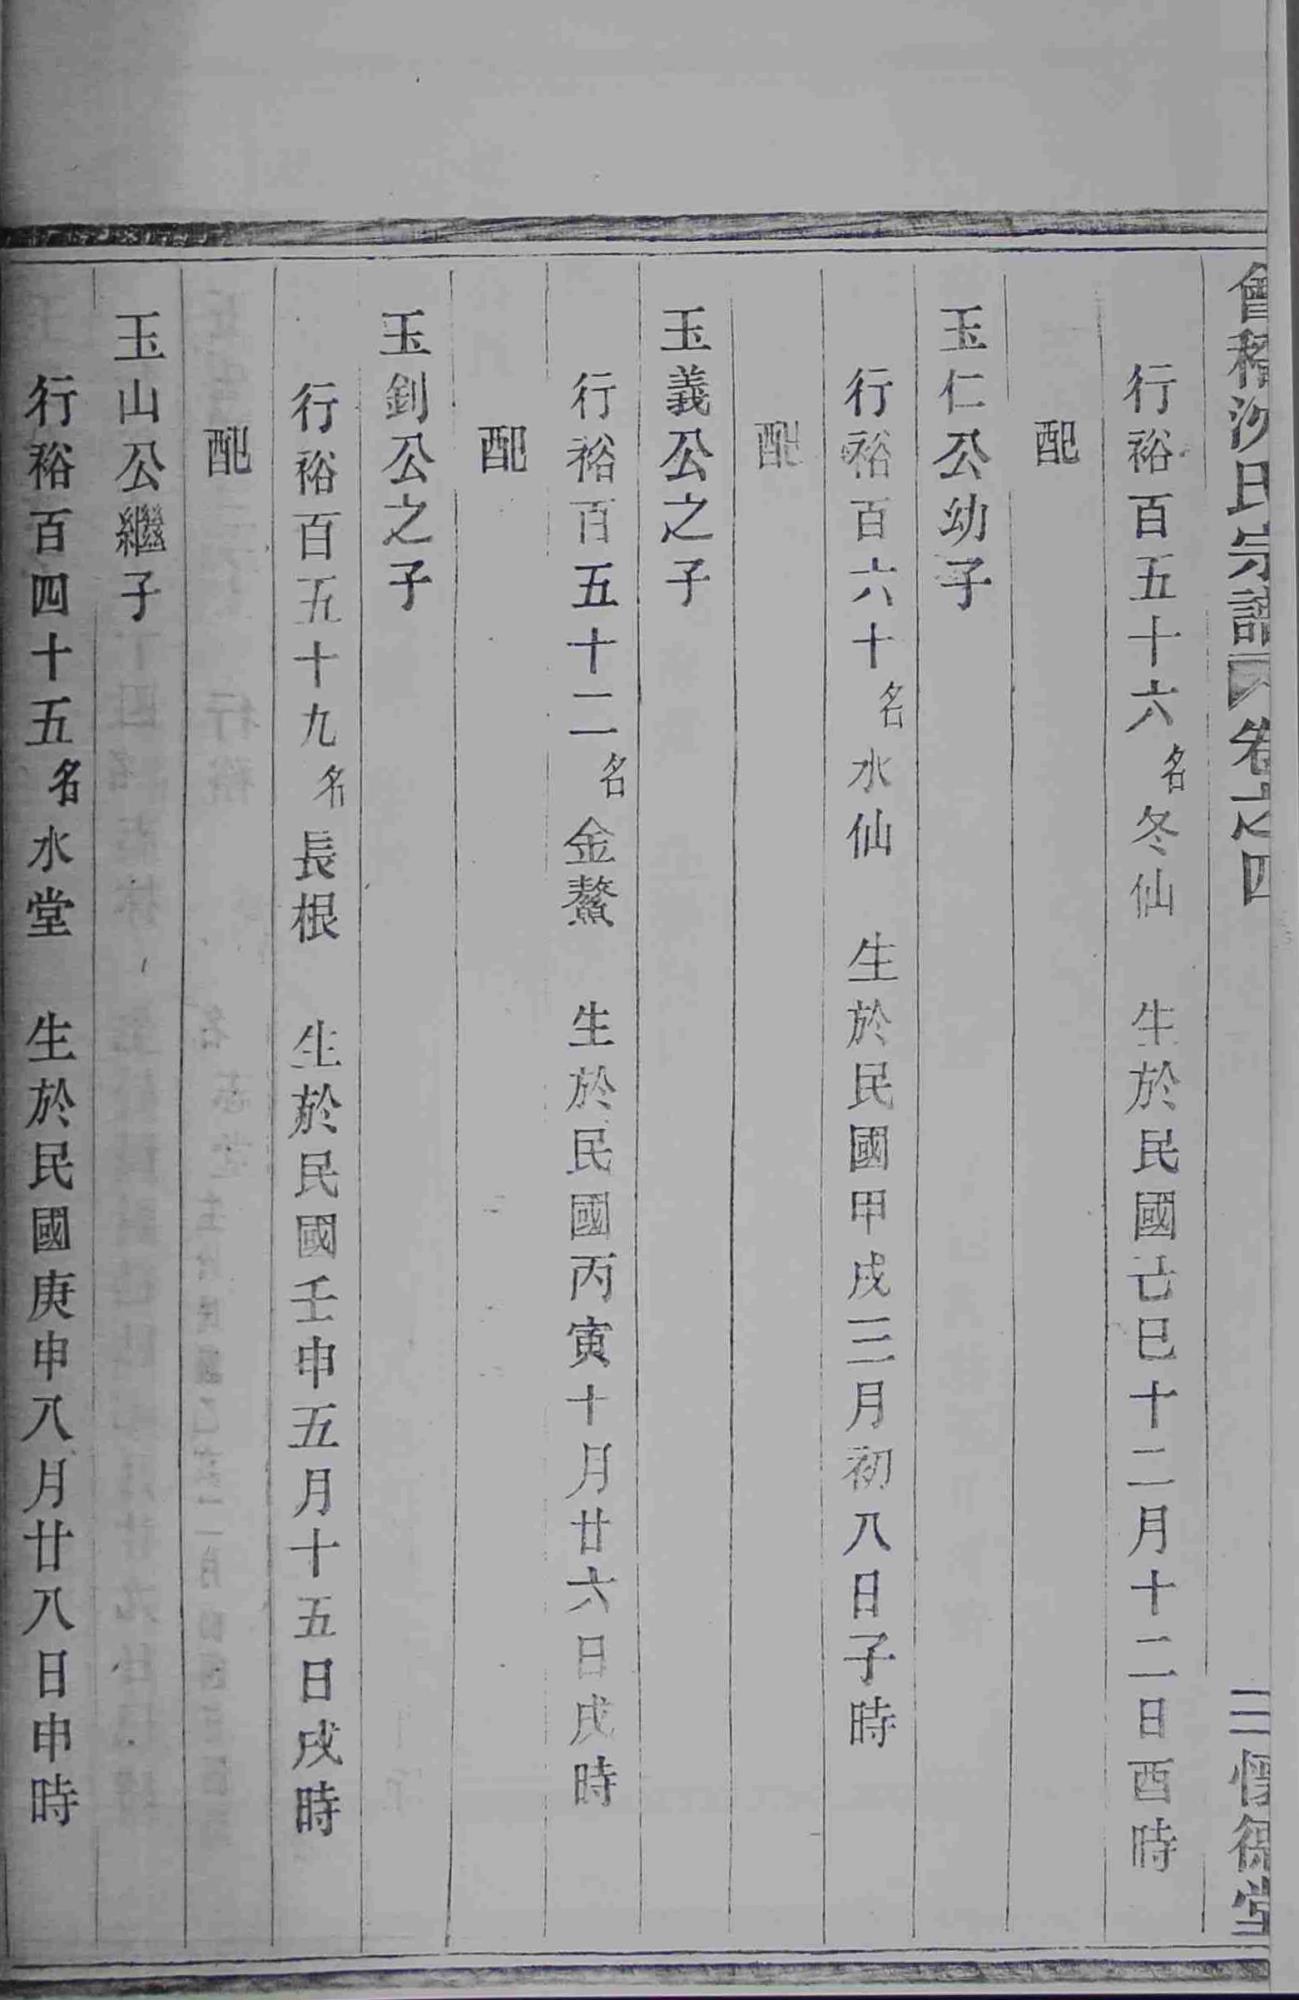 會稽沈氏宗譜 卷之四 三 懷德堂
行裕百五十六名冬仙 生於民國己巳十二月十二日酉時
配
玉仁公幼子
行裕百六十名水仙 生於民國甲戌三月初八日子時
配
玉義公之子
行裕百五十二名金鰲 生於民國丙寅十月廿六日戌時
配
玉釗公之子
行裕百五十九名長根 生於民國壬申五月十五日戌時
配
玉山公繼子
行裕百四十五名水堂 生於民國庚申八月廿八日申時